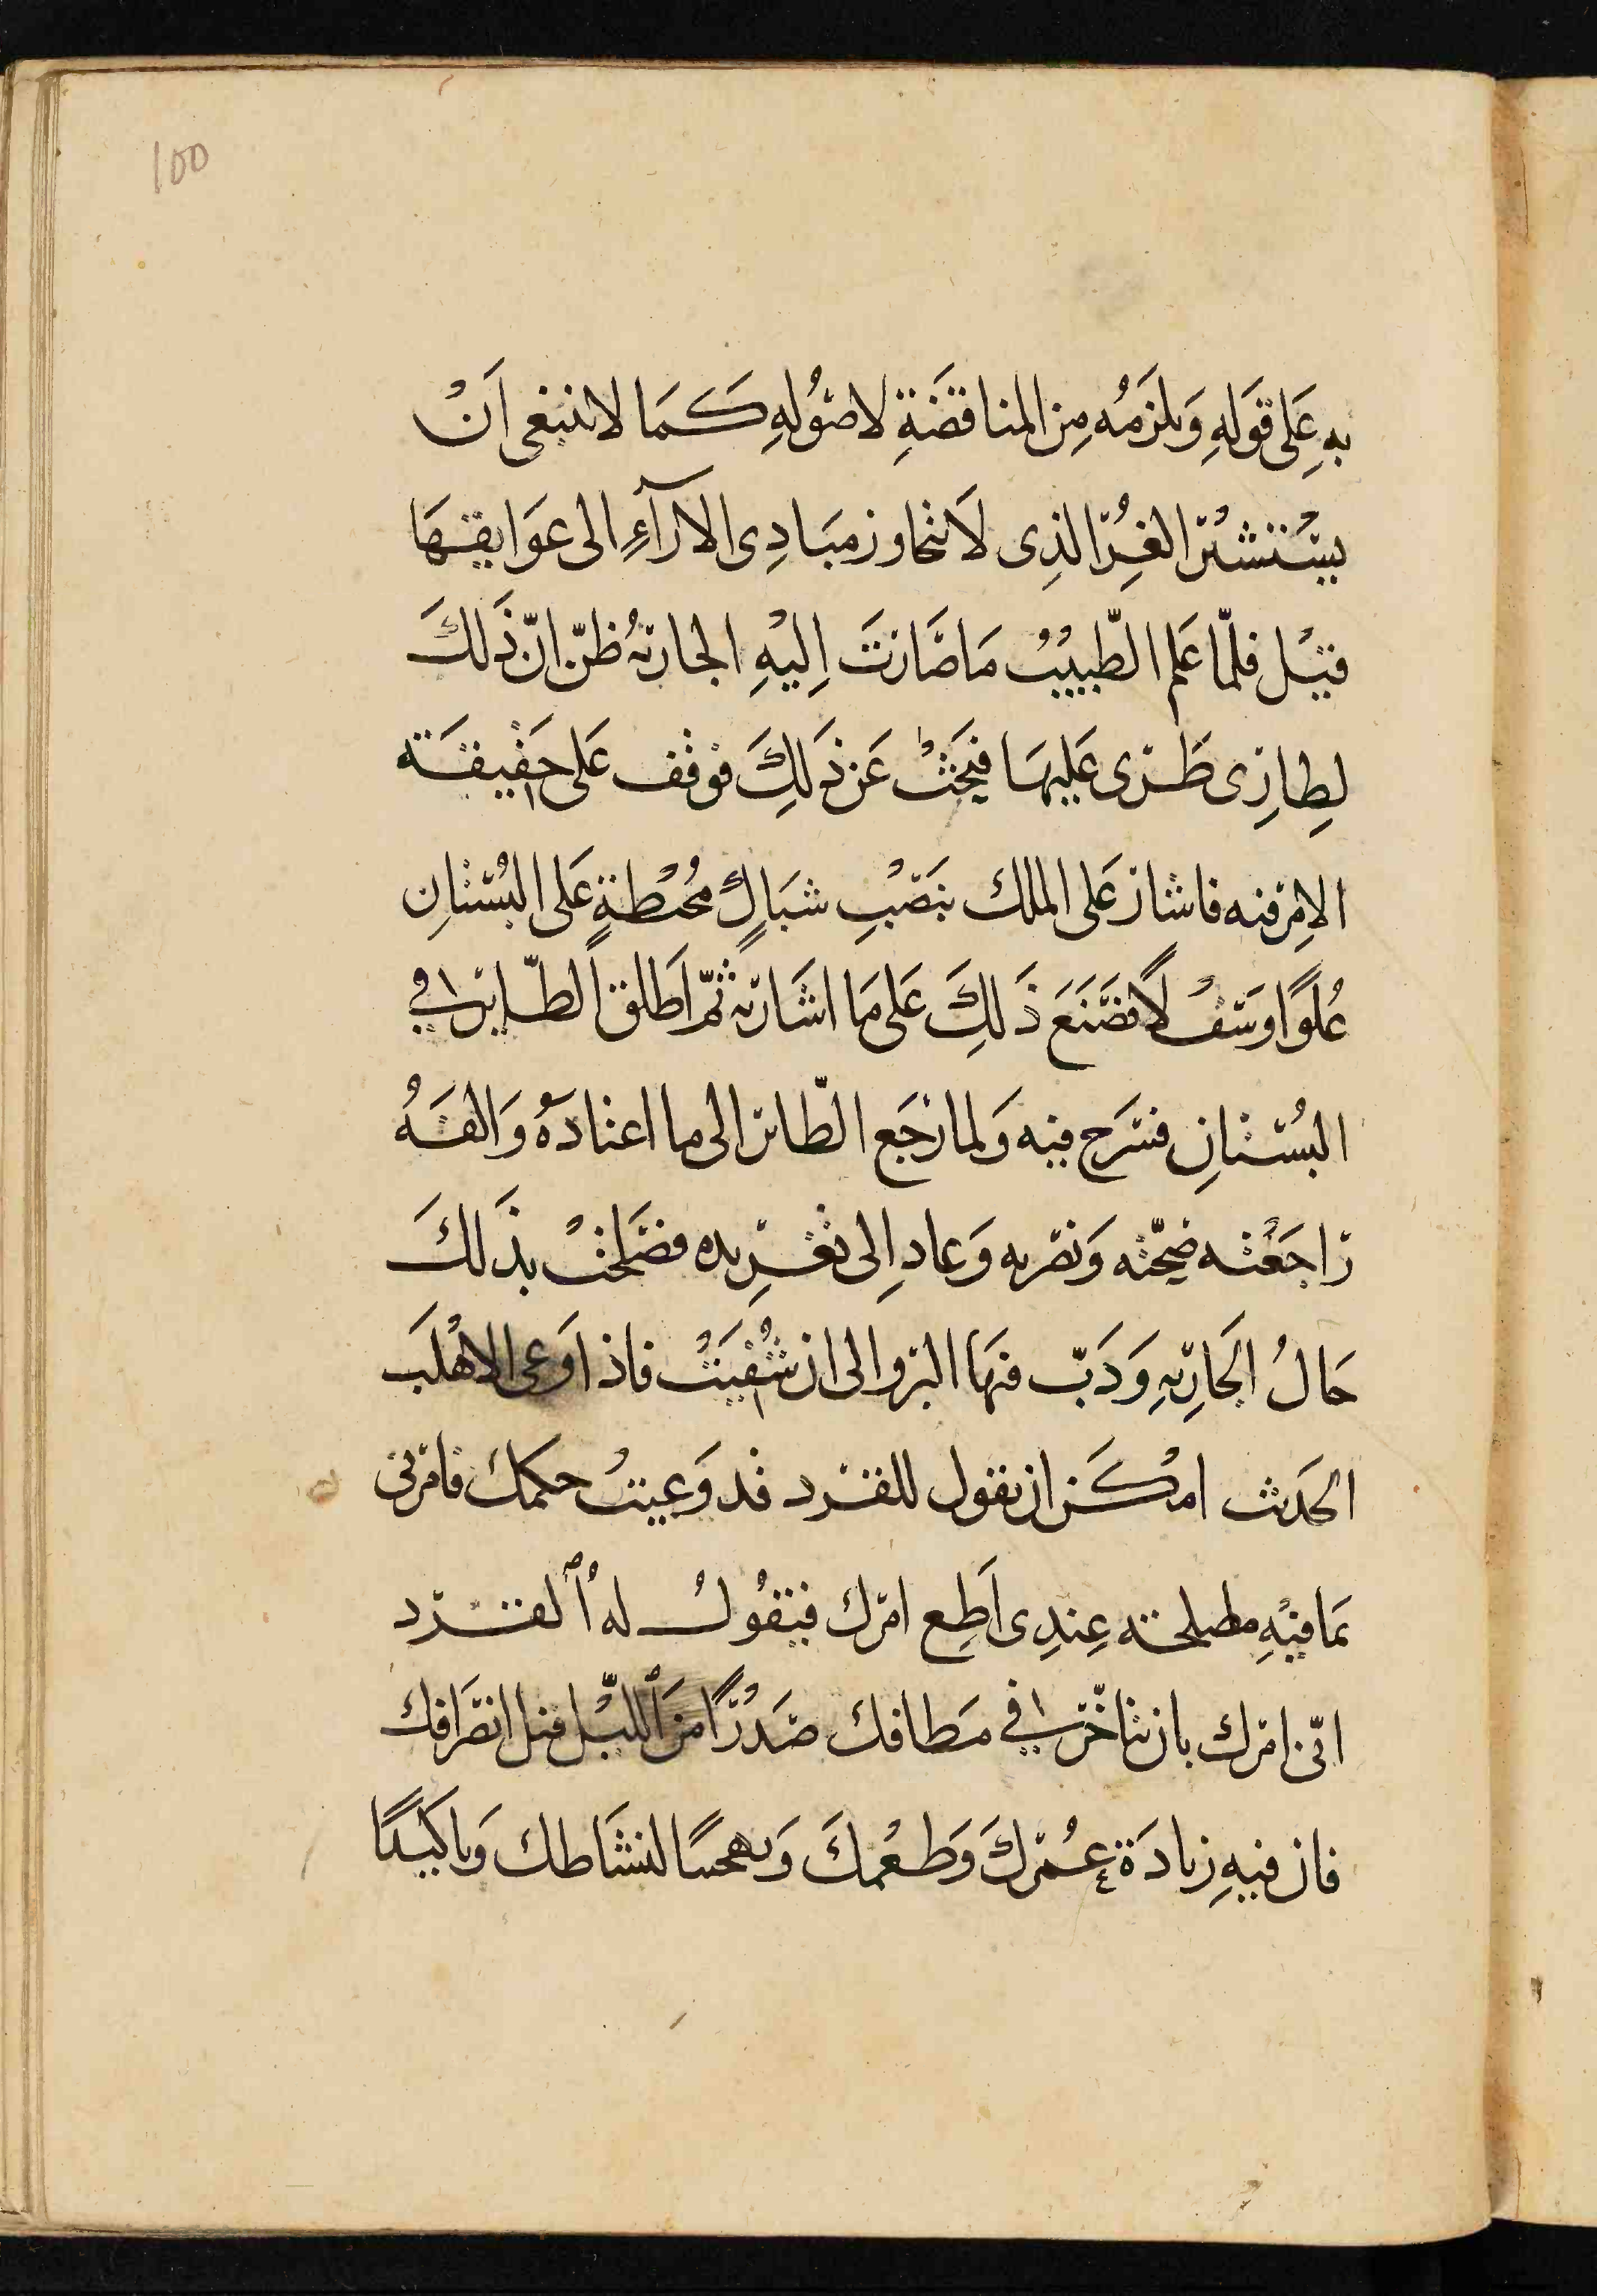 100
بهِ عَلى قَولهِ وَيلزمُه مِن المناقضَةِ لاصُولهِ كَمَا لا ينبغى اَنْ
يسْتشيْر الغِرّ الذِى لَا يتجاوز مبَادِى الارآءِ الى عوَاقبهَا
قيْل فلمّا عَلم الطّبيْبُ مَا صَارتَ اِليْهِ الجارية ظنّ انّ ذَلكَ
لِطارِى طَرى عَليهَا فبحَثْ عَن ذَلِكَ فوقف عَلى حَقيقَة
الامْر فيه فاشار عَلى الملك بنَصْبِ شبَاكٍ مُحيْطةٍ عَلى البُسْتَانِ
عُلوًا وسَفْلًا فصَنَعَ ذَلِكَ عَلى مَا اشَار به ثمّ اَطلق الطّاير فى
البُسْتَانِ فسَرح فيه وَلما رجَع الطّائر الى ما اعتادَهُ وَالفَهُ
رَاجَعْته صحّته وَ وَعاد اِلى تغْرِيده فصَلحَتْ بذَلكَ
حَالُ الجَارِيهِ وَدَبّ فيهَا البرو الى ان شُفيَتْ فاذا وَعى الاهْلَب
الحَديث امْكَن ان يقول للقرد قد وَعيتُ حكمك فامرنى
بمَا فيْهِ مطصلحته عِندِى اَطِع امْرك فيقُولُ لهُ القرد
انّى امرك بان تتاخّر فى مَطافك صَدْرًا منَ اللّيْل قبل انصَرافك
فان فيهِ زيادَة عُمْركَ وَطعْمكَ وَ لنشَاطك وَتاكيْدًا